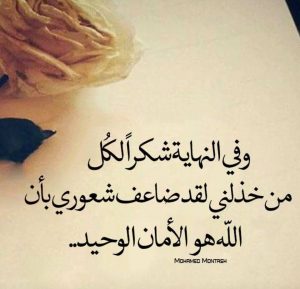 وفي النهاية شكراً لكُل
من خذلني لقد ضاعف شعوري بأن
الله هو الأمان الوحيد..
MOHAMED MONTASH